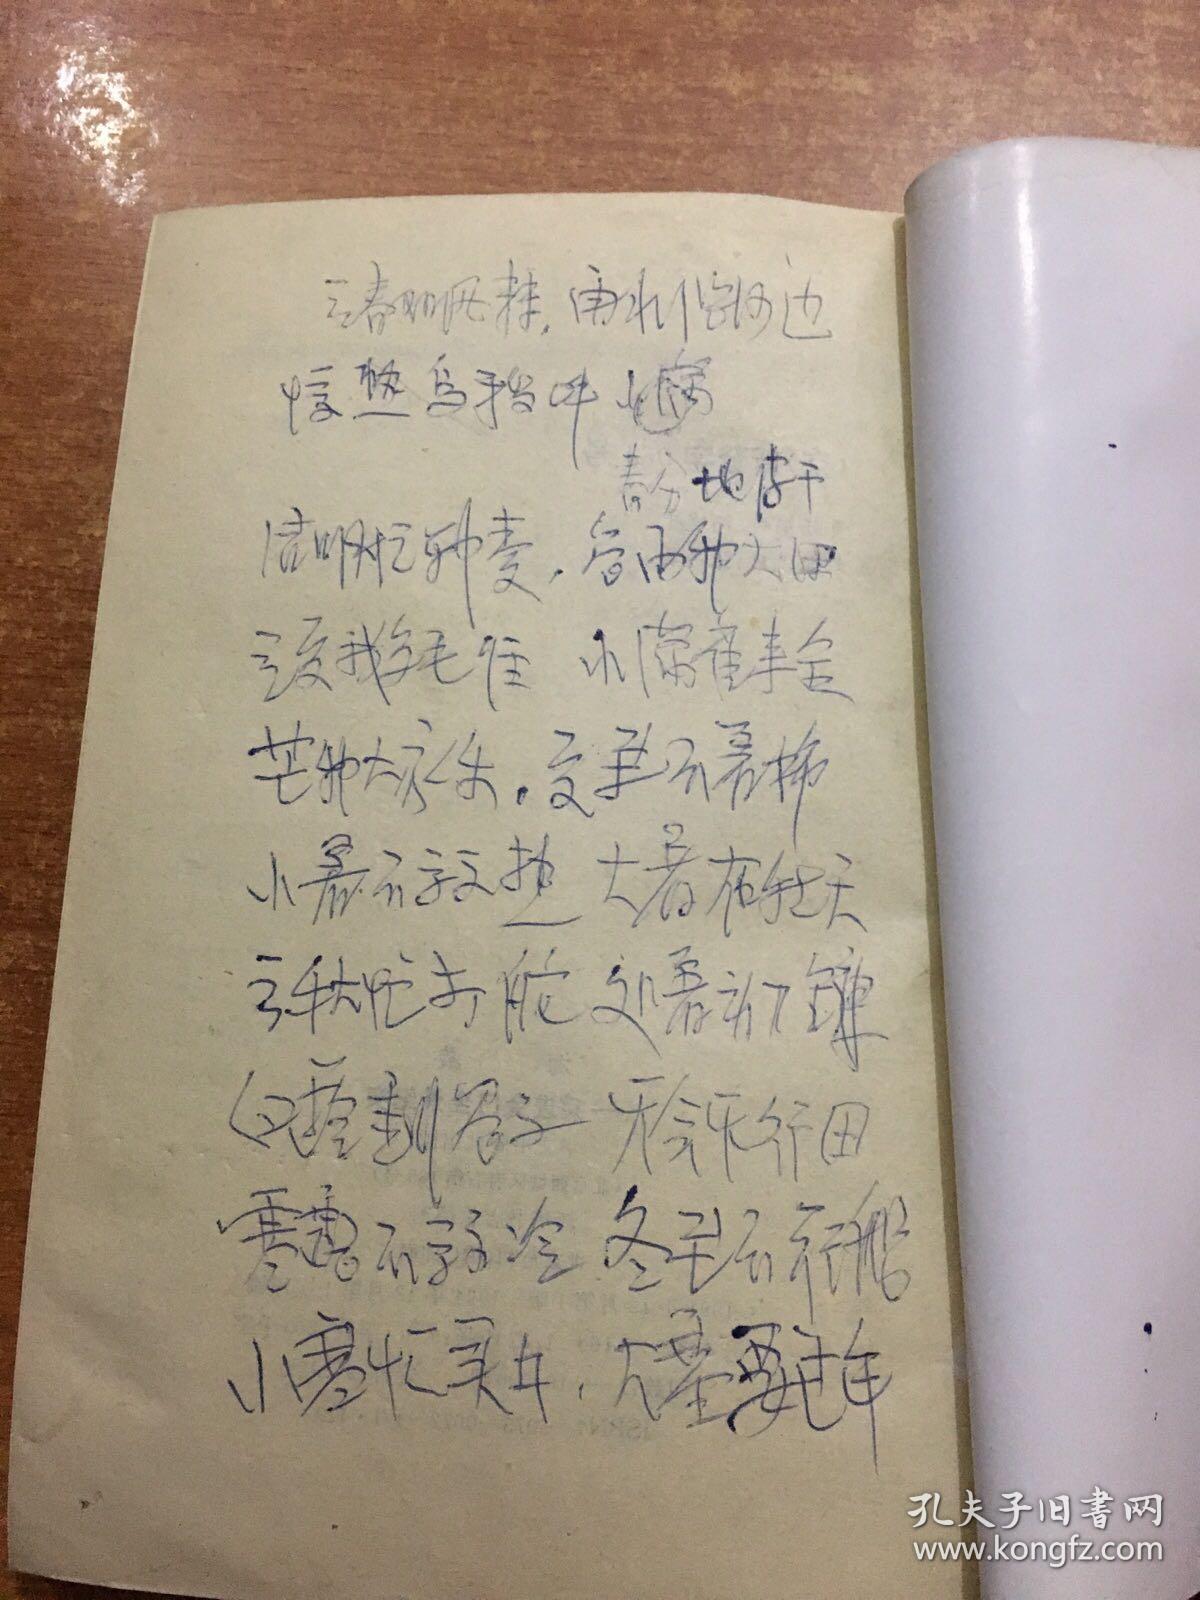 立春阳气转，雨水沿河边
惊蛰乌鸦叫 小满
春分地皮干
清明忙种麦，谷雨种大田
立夏鹅毛住 小满雀来全
芒种大家乐，夏至不着棉
小暑不算热 大暑在伏天
立秋忙打靛 处暑动刀镰
白露割 子 无 不行田
寒露不算冷 冬至不行船
小寒忙买办，大寒要过年
孔夫子旧书网
www.kongfz.com